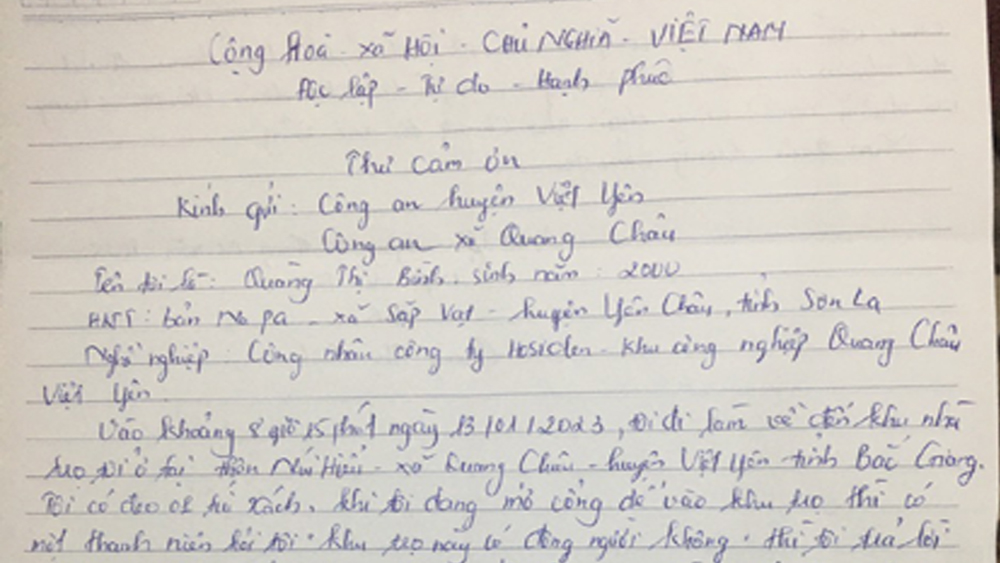 Cộng Hoà - xã Hội - CHỦ NGHĨA - VIỆT NAM
Độc lập - Tự do - Hạnh phúc
Thư cảm ơn
Kính gửi: Công an huyện Việt Yên
Công an xã Quang Châu
Tên tôi là: Quàng Thị Bình. sinh năm: 2000
HKTT: bản Na pa - xã Sặp Vạt - huyện Yên Châu, tỉnh Sơn La
Nghề nghiệp: Công nhân công ty Hosiden - khu công nghiệp Quang Châu
Việt Yên.
Vào khoảng 8 giờ 15 phút ngày 13/01/2023, tôi đi làm về đến khu nhà
trọ tôi ở tại thôn Núi Hiểu - xã Quang Châu - huyện Việt Yên - tỉnh Bắc Giang.
Tôi có đeo 01 túi xách, khi tôi đang mở cổng để vào khu trọ thì có
một thanh niên hỏi tôi. khu trọ này có đông người không. thì tôi trả lời